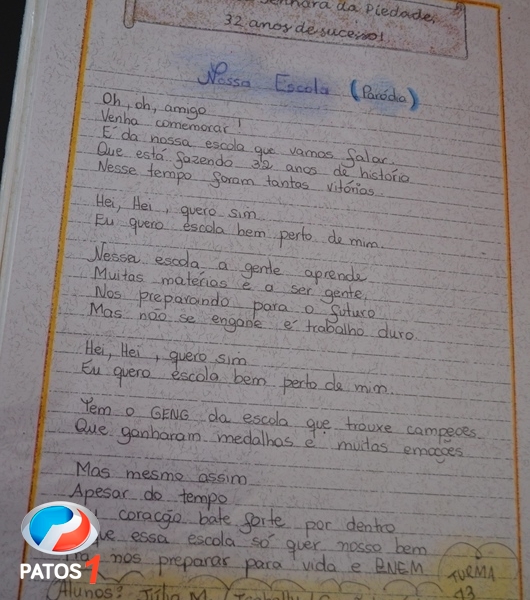 Senhora da Piedade,
32 anos de sucesso!
Nossa Escola (Paródia)
Oh, oh, amigo
Venha comemorar!
É da nossa escola que vamos falar.
Que está fazendo 32 anos de história
Nesse tempo foram tantas vitórias
Hei, Hei, quero sim
Eu quero escola bem perto de mim.
Nessa escola a gente aprende
Muitas matérias e a ser gente,
Nos preparando para o futuro
Mas não se engane é trabalho duro
Hei, Hei, quero sim
Eu quero escola bem perto de mim.
Tem o GENG da escola que trouxe campeões
Que ganharam medalhas e muitas emoções
Mas mesmo assim
Apesar do tempo
coração bate forte por dentro
ue essa escola só quer nosso bem
Pra nos preparar para vida e ENEM
TURMA
13
Alunos: Júlia M.
PATOS 1